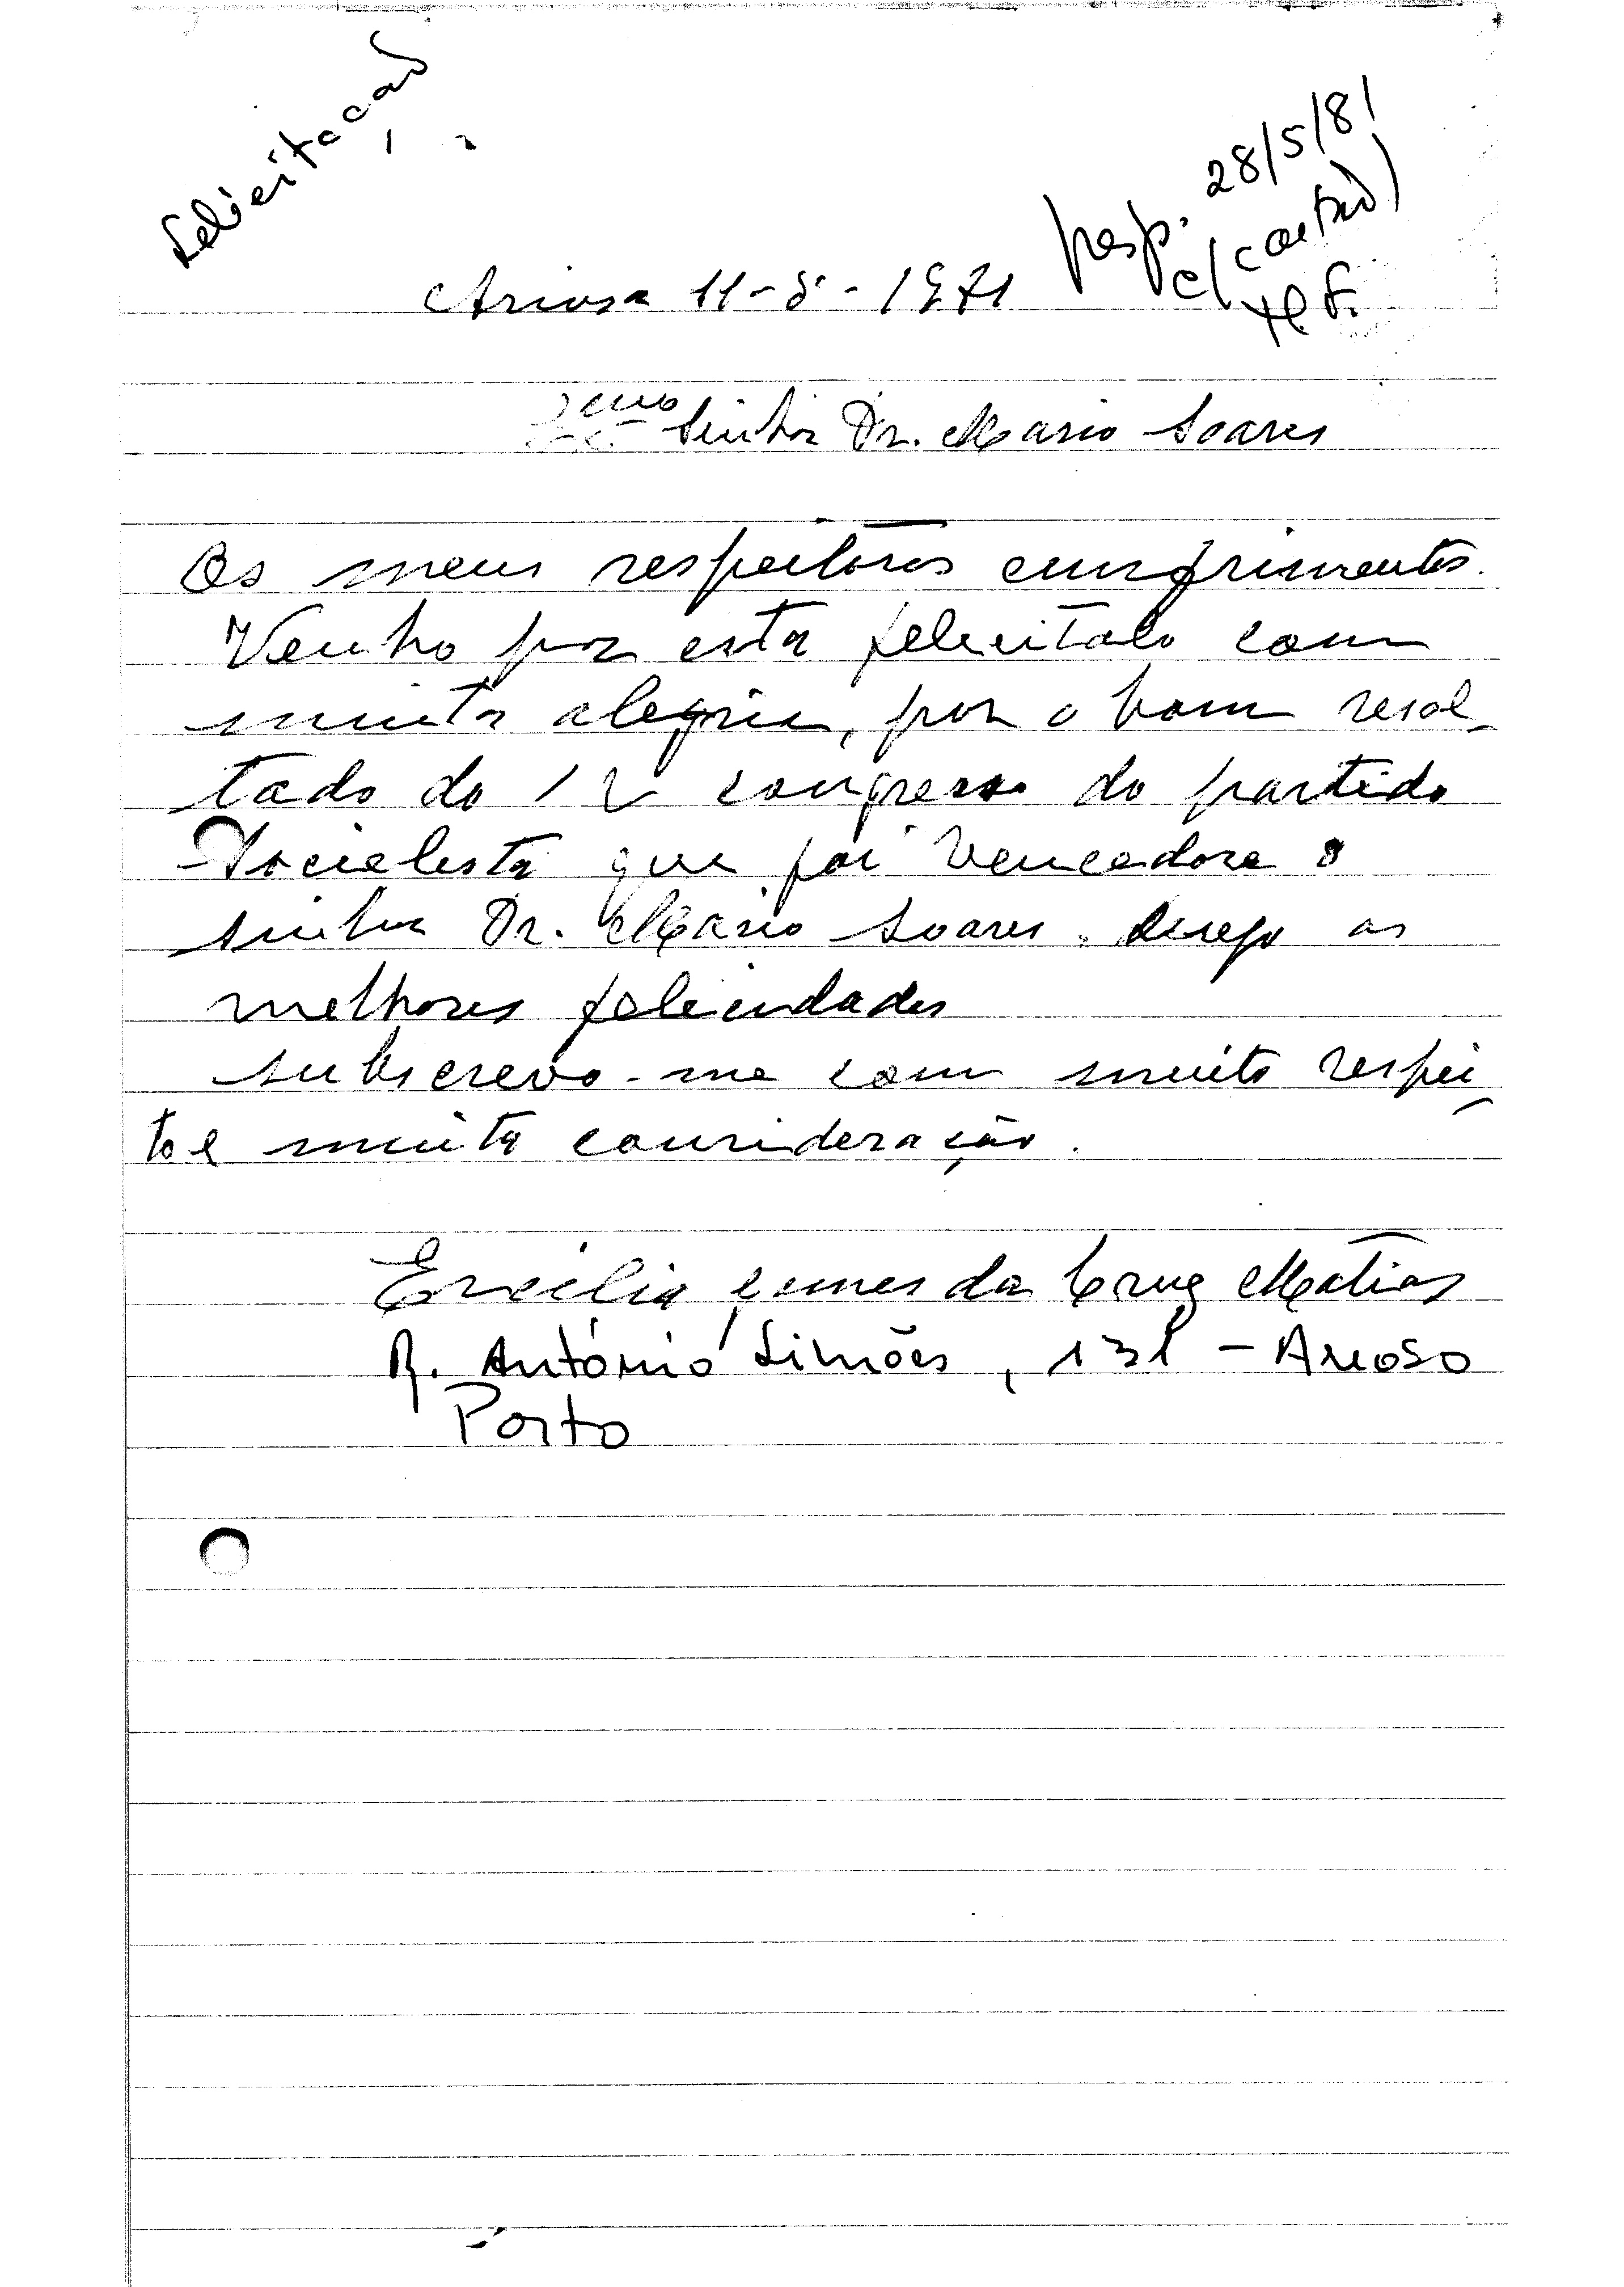 Felicitação
Resp. 28/5/81
c/ cartão
Areosa 11-5-1971
Senhor Dr. Mario Soares
Os meus respeitosos cumprimentos.
Venho por esta felecitalo com
muita alegria, por o bom resol-
tado do IV congresso do partido
Socielesta que foi Vencedore o
sinhor Dr. Mário Soares. desejo as
melhores felecidades
subscrevo-me com muito respei
to e muita consideração.
Ercilia gomes da Cruz Matias
R. António Simões, 131 - Areosa
Porto